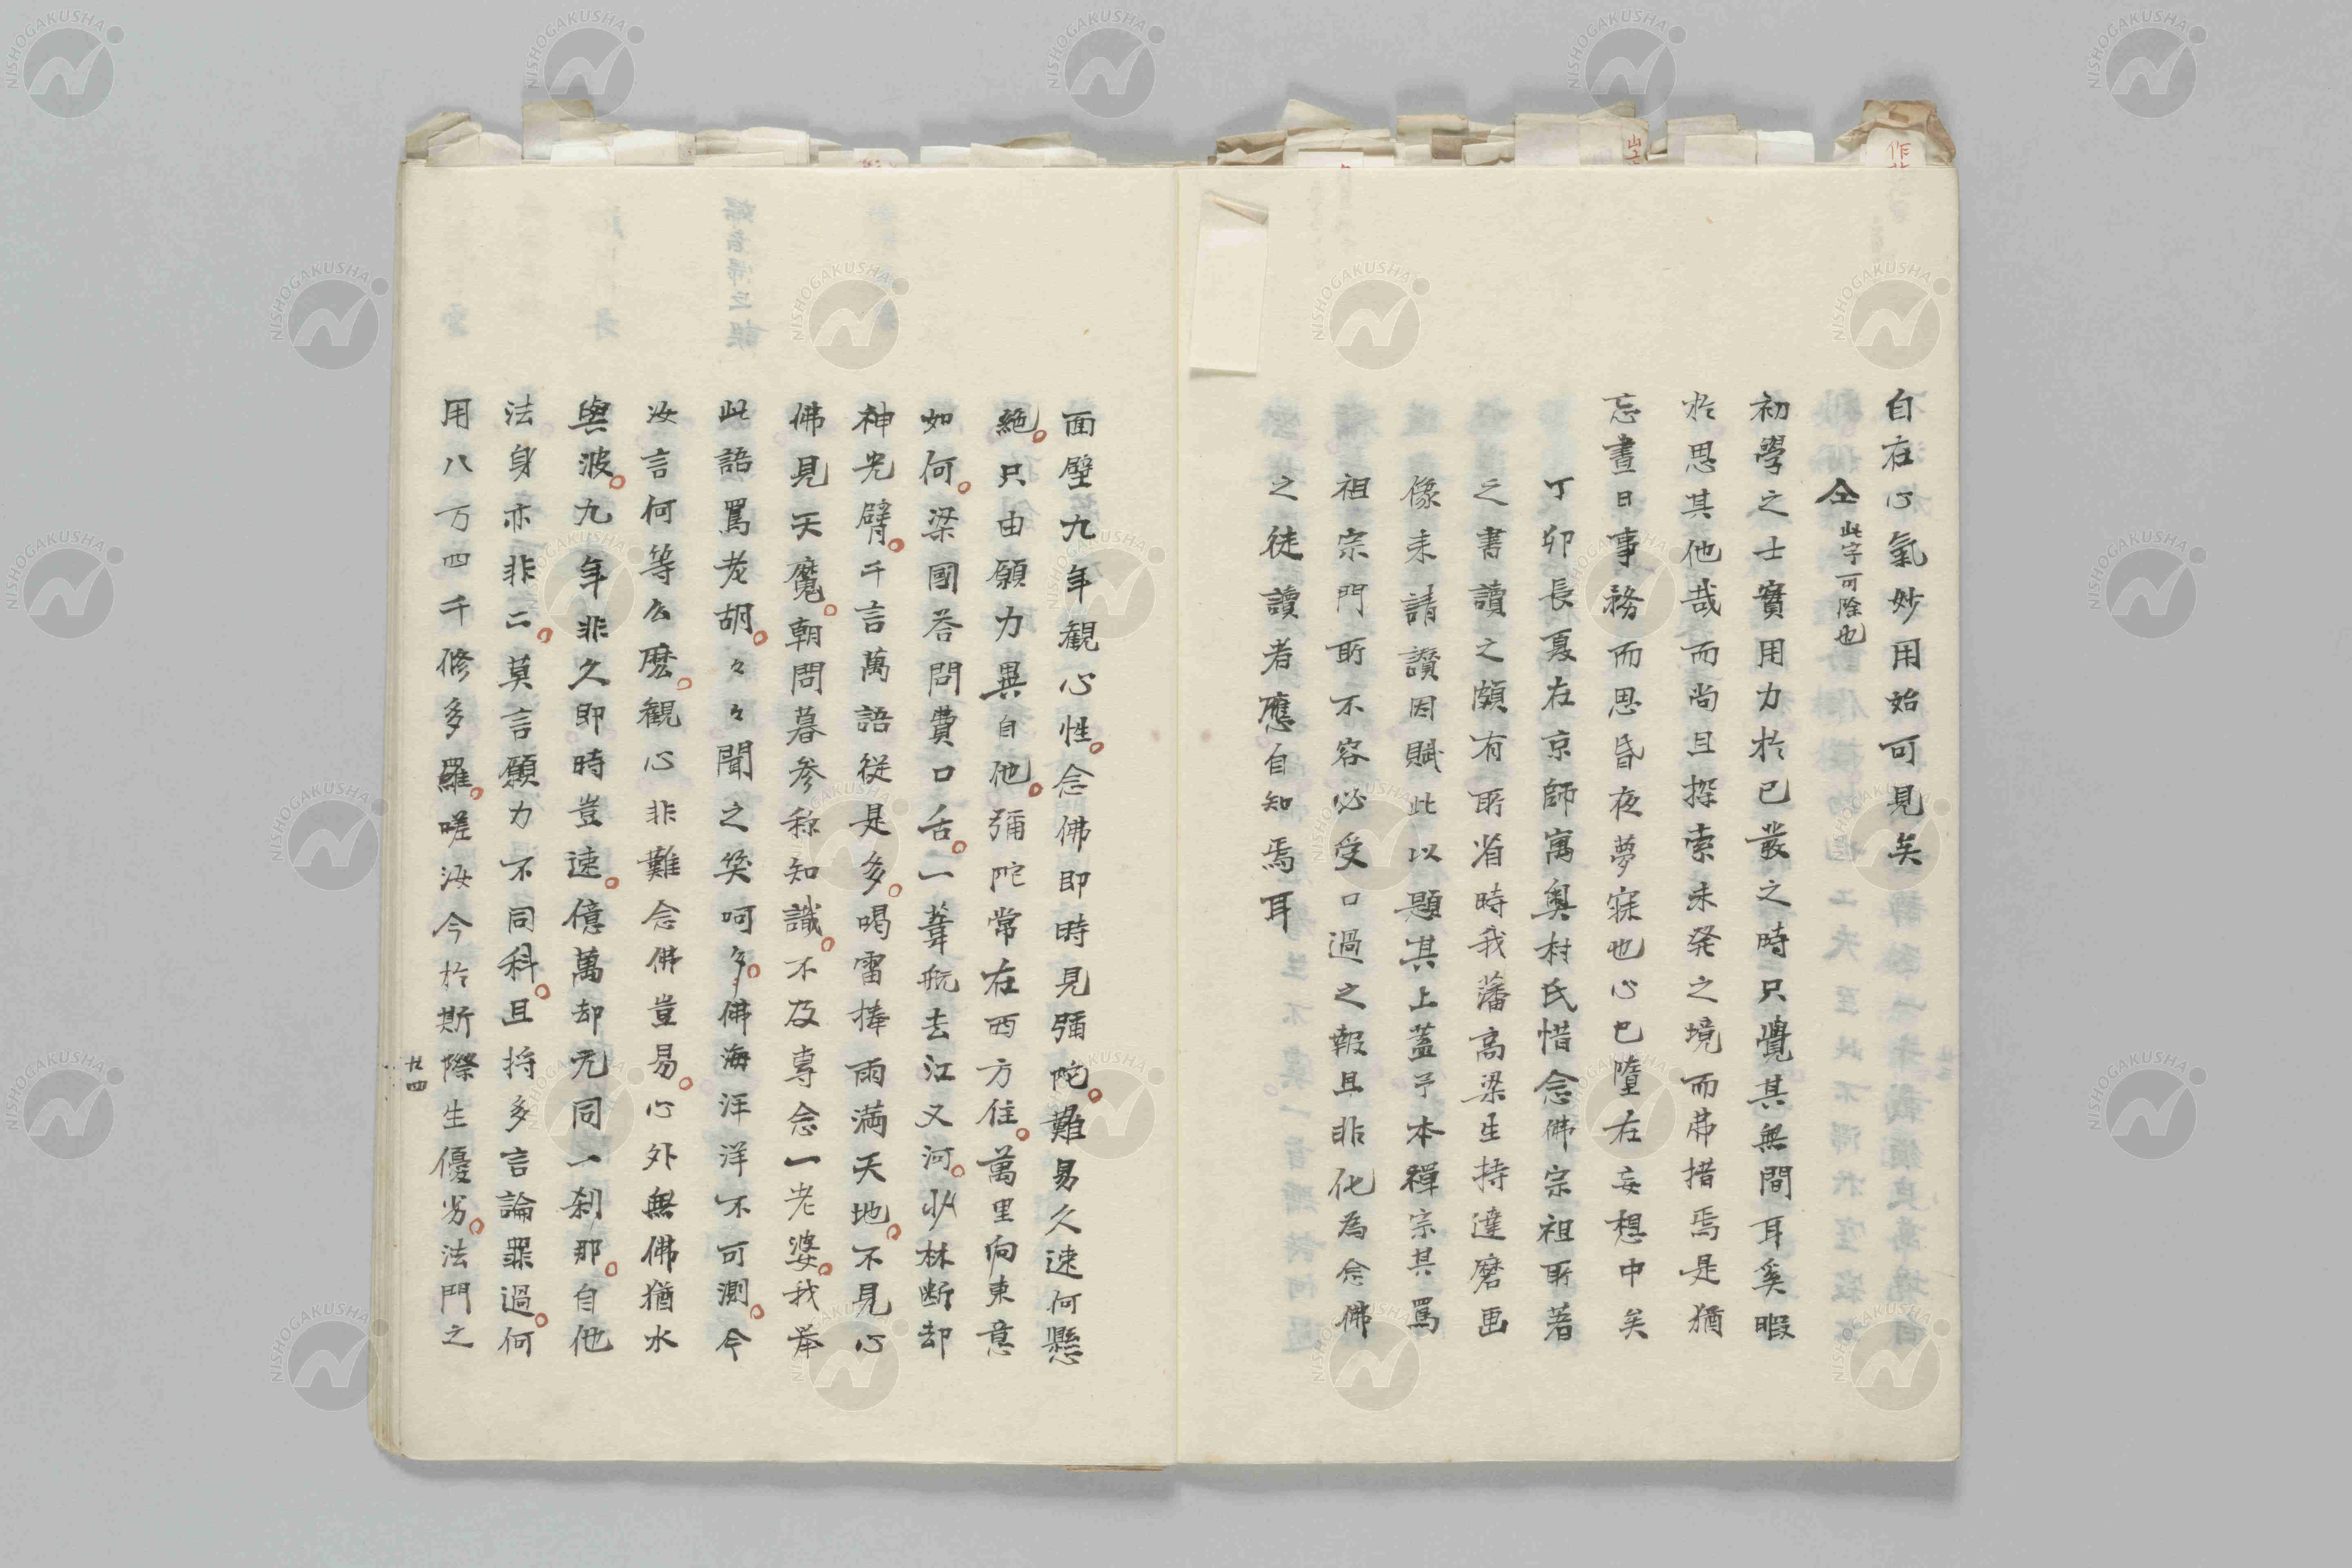 自在心氣妙用始可見矣
仝 此字可除也
初學之士實用力於已叢之時只覺其無間耳奚暇
於思其他哉而尚且探索未発之境而弗措焉是猶
忘晝日事務而思昏夜夢寐也心已墮在妄想中矣
丁卯長夏在京師寓奧村氏惜念佛宗祖所著
之書讀之頗有所省時我藩高梁生持達磨画
像来請讚因賦此以題其上蓋予本禪宗其罵
祖宗門所不容必受口過之報且非化為念佛
之徒讀者應自知焉耳
面壁九年観心性念佛即時見彌陀難易久速何懸
絶只由願力異自他彌陀常在西方住萬里向東意
如何梁國荅問費口舌一葦航去江又河少林断却
神光臂千言萬語従是多喝雷捧雨満天地不見心
佛見天魔朝問暮参称知識不及専念一老婆我挙
此語罵老胡々々聞之笑呵々佛海洋洋不可測今
汝言何等么麼観心非難念佛豈易心外無佛猶水
與波九年非久即時豈速億萬却元同一刹那自他
法身亦非二莫言願力不同科且捋多言論罪過何
用八万四千修多羅嗟汝今於斯際生優劣法門之
廿四
NISHOGAKUSHA